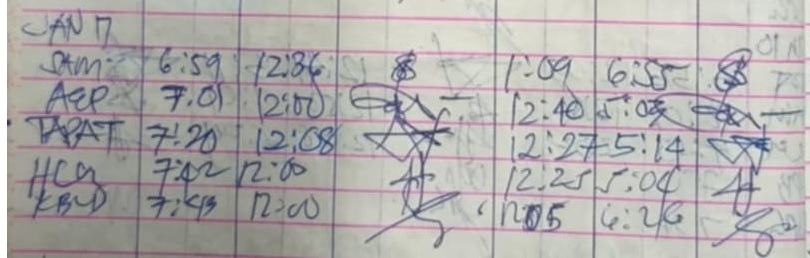 JAN 17
SAM 6:59 12:36 1:09 6:55
AEP 7:01 12:00 12:40 5:03
TAPAT 7:20 12:08 12:27 5:14
HCG 7:42 12:00 12:25 5:04
KBUD 7:43 12:00 1205 6:26